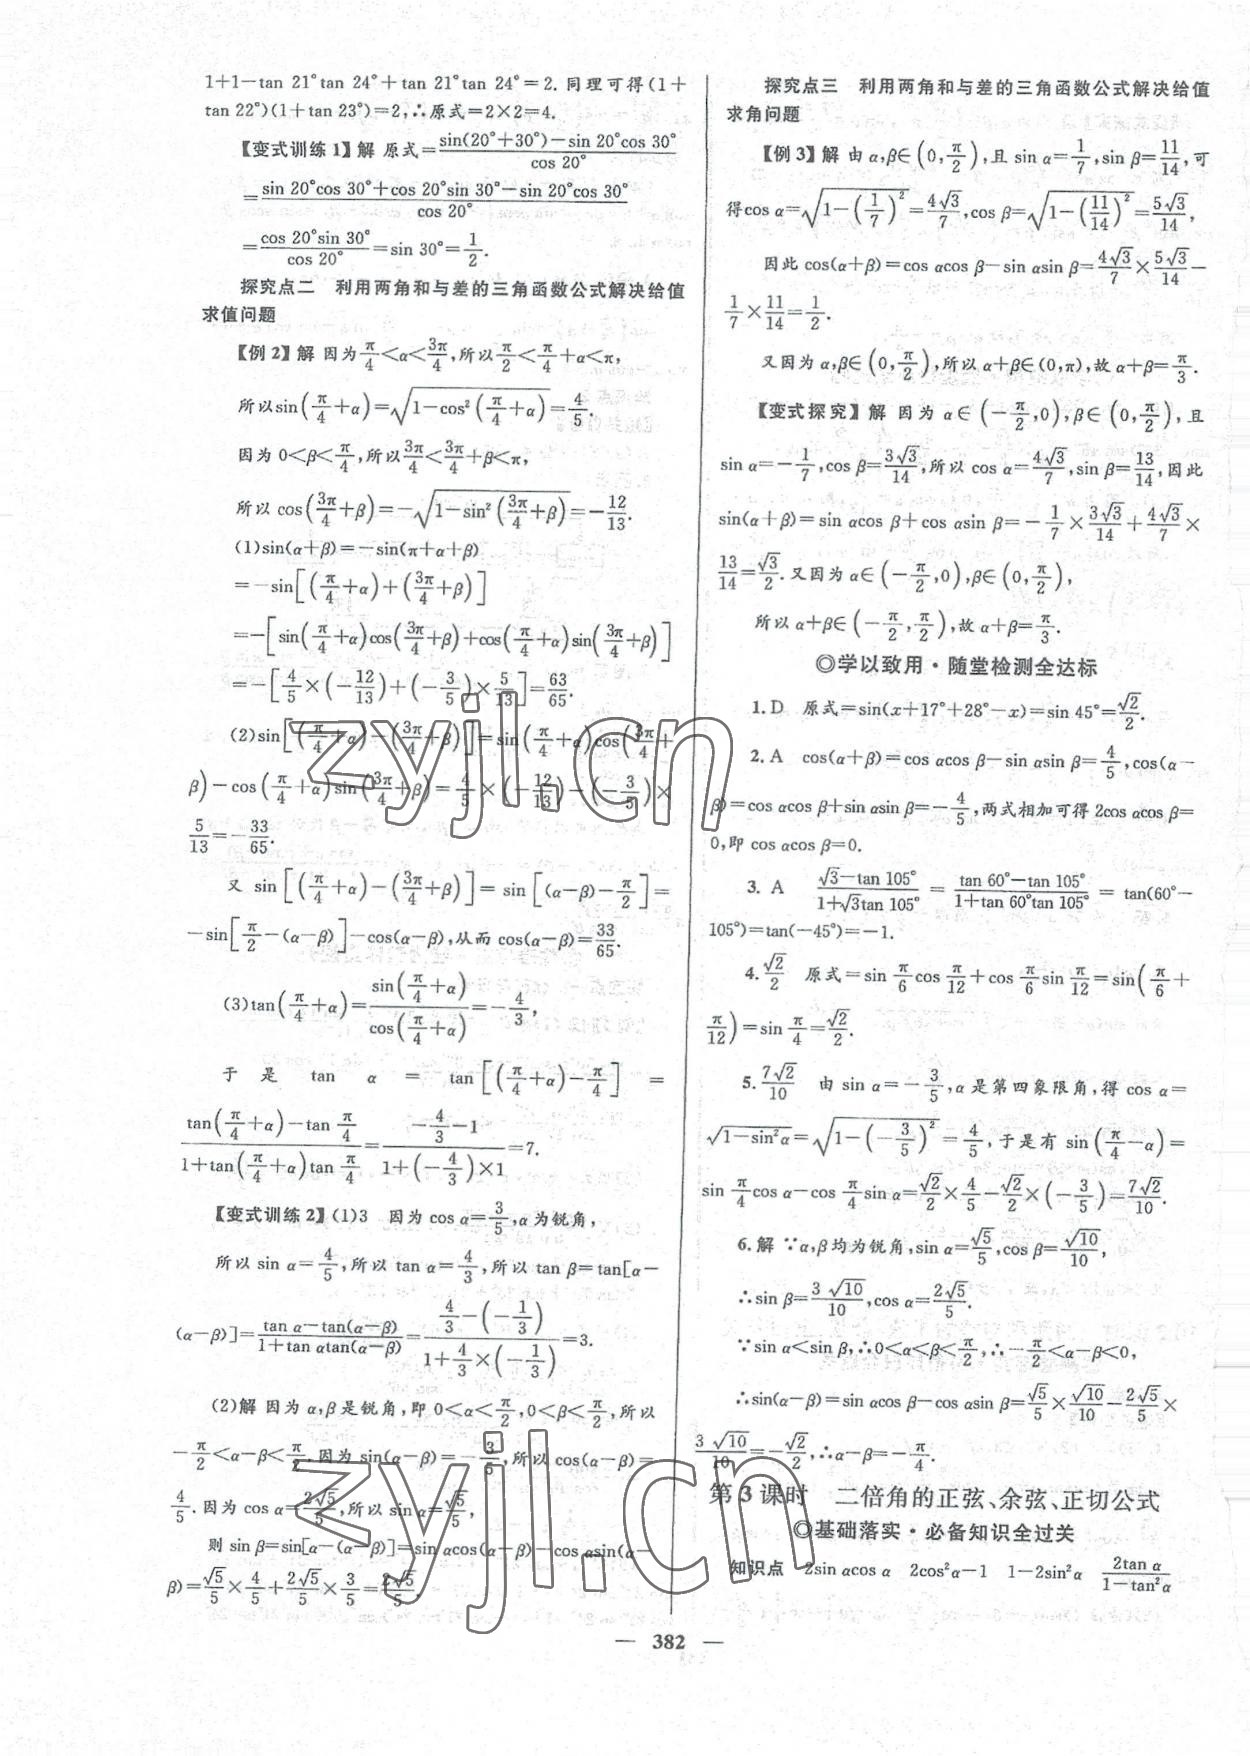 1+1-tan 21°tan 24°+tan 21°tan 24°=2. 同理可得(1+
tan 22°)(1+tan 23°)=2,∴原式=2×2=4.
【变式训练1】解 原式=\frac{sin(20°+30°)-sin 20°cos 30°}{cos 20°}
=\frac{sin 20°cos 30°+cos 20°sin 30°-sin 20°cos 30°}{cos 20°}
=\frac{cos 20°sin 30°}{cos 20°}=sin 30°=\frac{1}{2}.
探究点二 利用两角和与差的三角函数公式解决给值
求值问题
【例2】解 因为\frac{π}{4}<α<\frac{3π}{4},所以\frac{π}{2}<\frac{π}{4}+α<π,
所以sin(\frac{π}{4}+α)=\sqrt{1-cos²(\frac{π}{4}+α)}=\frac{4}{5}.
因为0<β<\frac{π}{4},所以\frac{3π}{4}<\frac{3π}{4}+β<π,
所以cos(\frac{3π}{4}+β)=-\sqrt{1-sin²(\frac{3π}{4}+β)}=-\frac{12}{13}.
(1)sin(α+β)=-sin(π+α+β)
=-sin[(\frac{π}{4}+α)+(\frac{3π}{4}+β)]
=-[sin(\frac{π}{4}+α)cos(\frac{3π}{4}+β)+cos(\frac{π}{4}+α)sin(\frac{3π}{4}+β)]
=-[\frac{4}{5}×(-\frac{12}{13})+(-\frac{3}{5})×\frac{5}{13}]=\frac{63}{65}.
(2)sin[(\frac{π}{4}+α)-(\frac{3π}{4}+β)]=sin(\frac{π}{4}+α)cos(\frac{3π}{4}+
β)-cos(\frac{π}{4}+α)sin(\frac{3π}{4}+β)=\frac{4}{5}×(-\frac{12}{13})-(-\frac{3}{5})×
\frac{5}{13}=-\frac{33}{65}.
又 sin[(\frac{π}{4}+α)-(\frac{3π}{4}+β)]=sin[(α-β)-\frac{π}{2}]=
-sin[\frac{π}{2}-(α-β)]-cos(α-β),从而cos(α-β)=\frac{33}{65}.
(3)tan(\frac{π}{4}+α)=\frac{sin(\frac{π}{4}+α)}{cos(\frac{π}{4}+α)}=-\frac{4}{3},
于是 tan α = tan[(\frac{π}{4}+α)-\frac{π}{4}] =
\frac{tan(\frac{π}{4}+α)-tan \frac{π}{4}}{1+tan(\frac{π}{4}+α)tan \frac{π}{4}}=\frac{-\frac{4}{3}-1}{1+(-\frac{4}{3})×1}=7.
【变式训练2】(1)3 因为cos α=\frac{3}{5},α为锐角,
所以sin α=\frac{4}{5},所以tan α=\frac{4}{3},所以tan β=tan[α-
(α-β)]=\frac{tan α-tan(α-β)}{1+tan αtan(α-β)}=\frac{\frac{4}{3}-(-\frac{1}{3})}{1+\frac{4}{3}×(-\frac{1}{3})}=3.
(2)解 因为α,β是锐角,即0<α<\frac{π}{2},0<β<\frac{π}{2},所以
-\frac{π}{2}<α-β<\frac{π}{2}.因为sin(α-β)=-\frac{3}{5},所以cos(α-β)=
\frac{4}{5}.因为cos α=\frac{2\sqrt{5}}{5},所以sin α=\frac{\sqrt{5}}{5},
则sin β=sin[α-(α-β)]=sin αcos(α-β)-cos αsin(α-
β)=\frac{\sqrt{5}}{5}×\frac{4}{5}+\frac{2\sqrt{5}}{5}×\frac{3}{5}=\frac{2\sqrt{5}}{5}.
探究点三 利用两角和与差的三角函数公式解决给值
求角问题
【例3】解 由α,β∈(0,\frac{π}{2}),且sin α=\frac{1}{7},sin β=\frac{11}{14},可
得cos α=\sqrt{1-(\frac{1}{7})²}=\frac{4\sqrt{3}}{7},cos β=\sqrt{1-(\frac{11}{14})²}=\frac{5\sqrt{3}}{14},
因此cos(α+β)=cos αcos β-sin αsin β=\frac{4\sqrt{3}}{7}×\frac{5\sqrt{3}}{14}-
\frac{1}{7}×\frac{11}{14}=\frac{1}{2}.
又因为α,β∈(0,\frac{π}{2}),所以α+β∈(0,π),故α+β=\frac{π}{3}.
【变式探究】解 因为α∈(-\frac{π}{2},0),β∈(0,\frac{π}{2}),且
sin α=-\frac{1}{7},cos β=\frac{3\sqrt{3}}{14},所以cos α=\frac{4\sqrt{3}}{7},sin β=\frac{13}{14},因此
sin(α+β)=sin αcos β+cos αsin β=-\frac{1}{7}×\frac{3\sqrt{3}}{14}+\frac{4\sqrt{3}}{7}×
\frac{13}{14}=\frac{\sqrt{3}}{2}.又因为α∈(-\frac{π}{2},0),β∈(0,\frac{π}{2}),
所以α+β∈(-\frac{π}{2},\frac{π}{2}),故α+β=\frac{π}{3}.
◎学以致用·随堂检测全达标
1.D 原式=sin(x+17°+28°-x)=sin 45°=\frac{\sqrt{2}}{2}.
2.A cos(α+β)=cos αcos β-sin αsin β=\frac{4}{5},cos(α-
β)=cos αcos β+sin αsin β=-\frac{4}{5},两式相加可得2cos αcos β=
0,即cos αcos β=0.
3.A \frac{\sqrt{3}-tan 105°}{1+\sqrt{3}tan 105°}=\frac{tan 60°-tan 105°}{1+tan 60°tan 105°}=tan(60°-
105°)=tan(-45°)=-1.
4.\frac{\sqrt{2}}{2} 原式=sin \frac{π}{6}cos \frac{π}{12}+cos \frac{π}{6}sin \frac{π}{12}=sin(\frac{π}{6}+
\frac{π}{12})=sin \frac{π}{4}=\frac{\sqrt{2}}{2}.
5.\frac{7\sqrt{2}}{10} 由sin α=-\frac{3}{5},α是第四象限角,得cos α=
\sqrt{1-sin²α}=\sqrt{1-(-\frac{3}{5})²}=\frac{4}{5},于是有sin(\frac{π}{4}-α)=
sin \frac{π}{4}cos α-cos \frac{π}{4}sin α=\frac{\sqrt{2}}{2}×\frac{4}{5}-\frac{\sqrt{2}}{2}×(-\frac{3}{5})=\frac{7\sqrt{2}}{10}.
6.解 ∵α,β均为锐角,sin α=\frac{\sqrt{5}}{5},cos β=\frac{\sqrt{10}}{10},
∴sin β=\frac{3\sqrt{10}}{10},cos α=\frac{2\sqrt{5}}{5}.
∵sin α<sin β,∴0<α<β<\frac{π}{2},∴-\frac{π}{2}<α-β<0,
∴sin(α-β)=sin αcos β-cos αsin β=\frac{\sqrt{5}}{5}×\frac{\sqrt{10}}{10}-\frac{2\sqrt{5}}{5}×
\frac{3\sqrt{10}}{10}=-\frac{\sqrt{2}}{2},∴α-β=-\frac{π}{4}.
第3课时 二倍角的正弦、余弦、正切公式
◎基础落实·必备知识全过关
知识点 2sin αcos α 2cos²α-1 1-2sin²α \frac{2tan α}{1-tan²α}
— 382 —
zyjl.cn
zyjl.cn